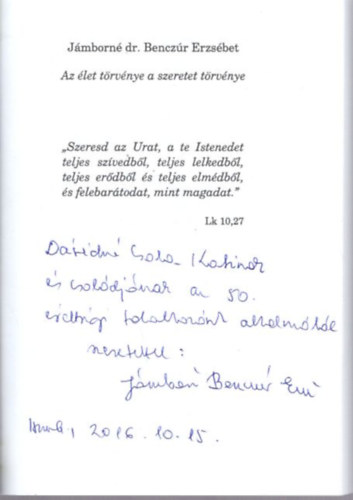 Jámborné dr. Benczúr Erzsébet
Az élet törvénye a szeretet törvénye
„Szeresd az Urat, a te Istenedet
teljes szívedből, teljes lelkedből,
teljes erődből és teljes elmédből,
és felebarátodat, mint magadat.”
Lk 10,27
Dávidné Csala Katinak
és családjának az 50.
érettségi találkozónk alkalmából
szeretettel:
Jámborné Benczúr Erzsi
2016.10.15.